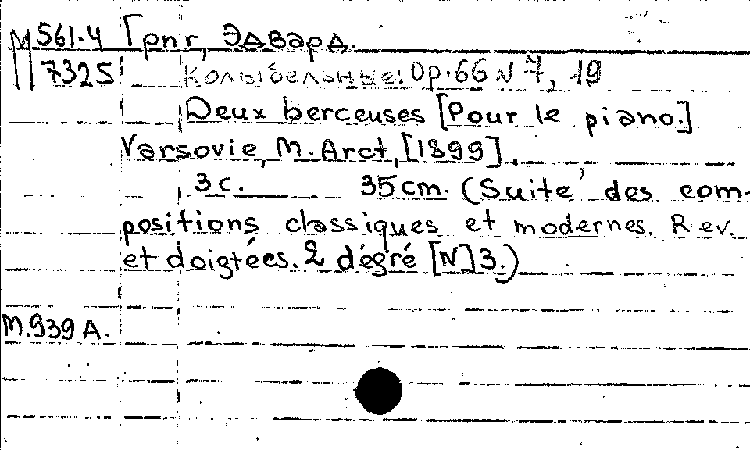 М 561-4 Григ, Эдвард.
7325 Колыбельные: Op. 66 N 7, 19
Deux berceuses [Pour le piano.]
Varsovie, M. Arct, [1899].
3 с. 35 cm. (Suite des com-
positions classiques et modernes. Rev.
et doigtées. 2 dégré [N] 3.)
М.939 А.